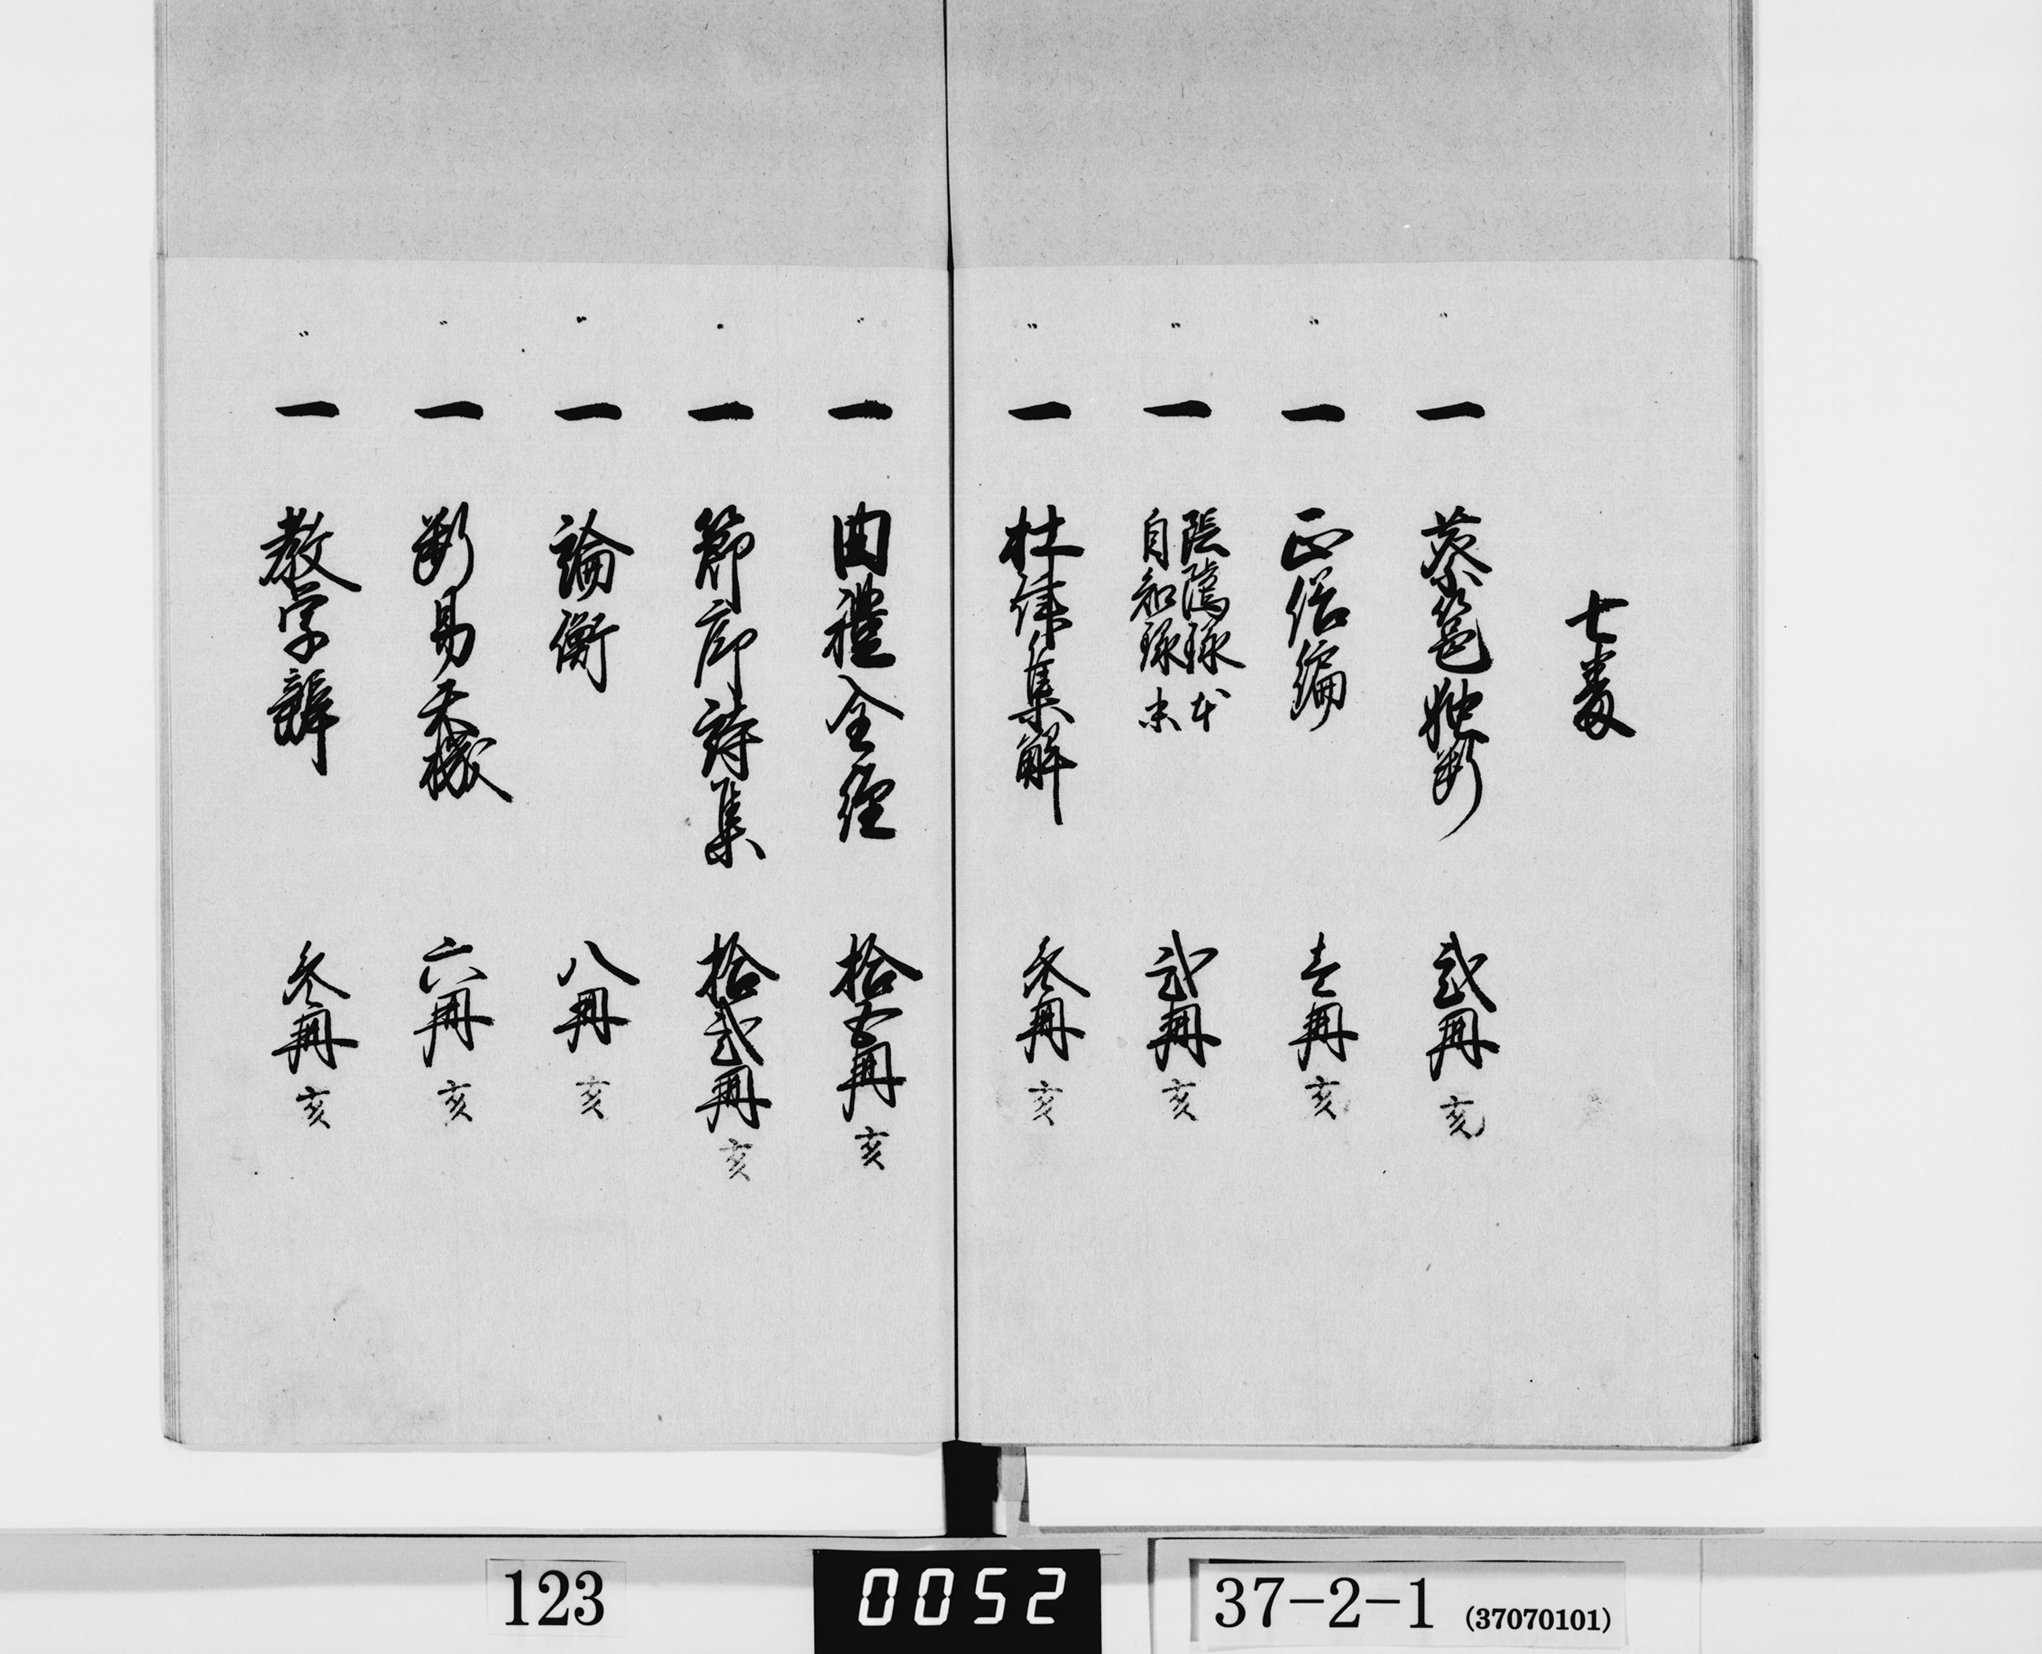 七
〃 一 蔡邕独断 弐冊 亥
〃 一 正俗編 壱冊 亥
〃 一 陰隲録 本 自知録 末 弐冊 亥
〃 一 杜律集解 参冊 亥
〃 一 曲禮全經 拾五冊 亥
〃 一 節序詩集 拾弐冊 亥
〃 一 論衡 八冊 亥
〃 一 断易天機 六冊 亥
〃 一 教学辯 参冊 亥
123
0052
37-2-1 (37070101)